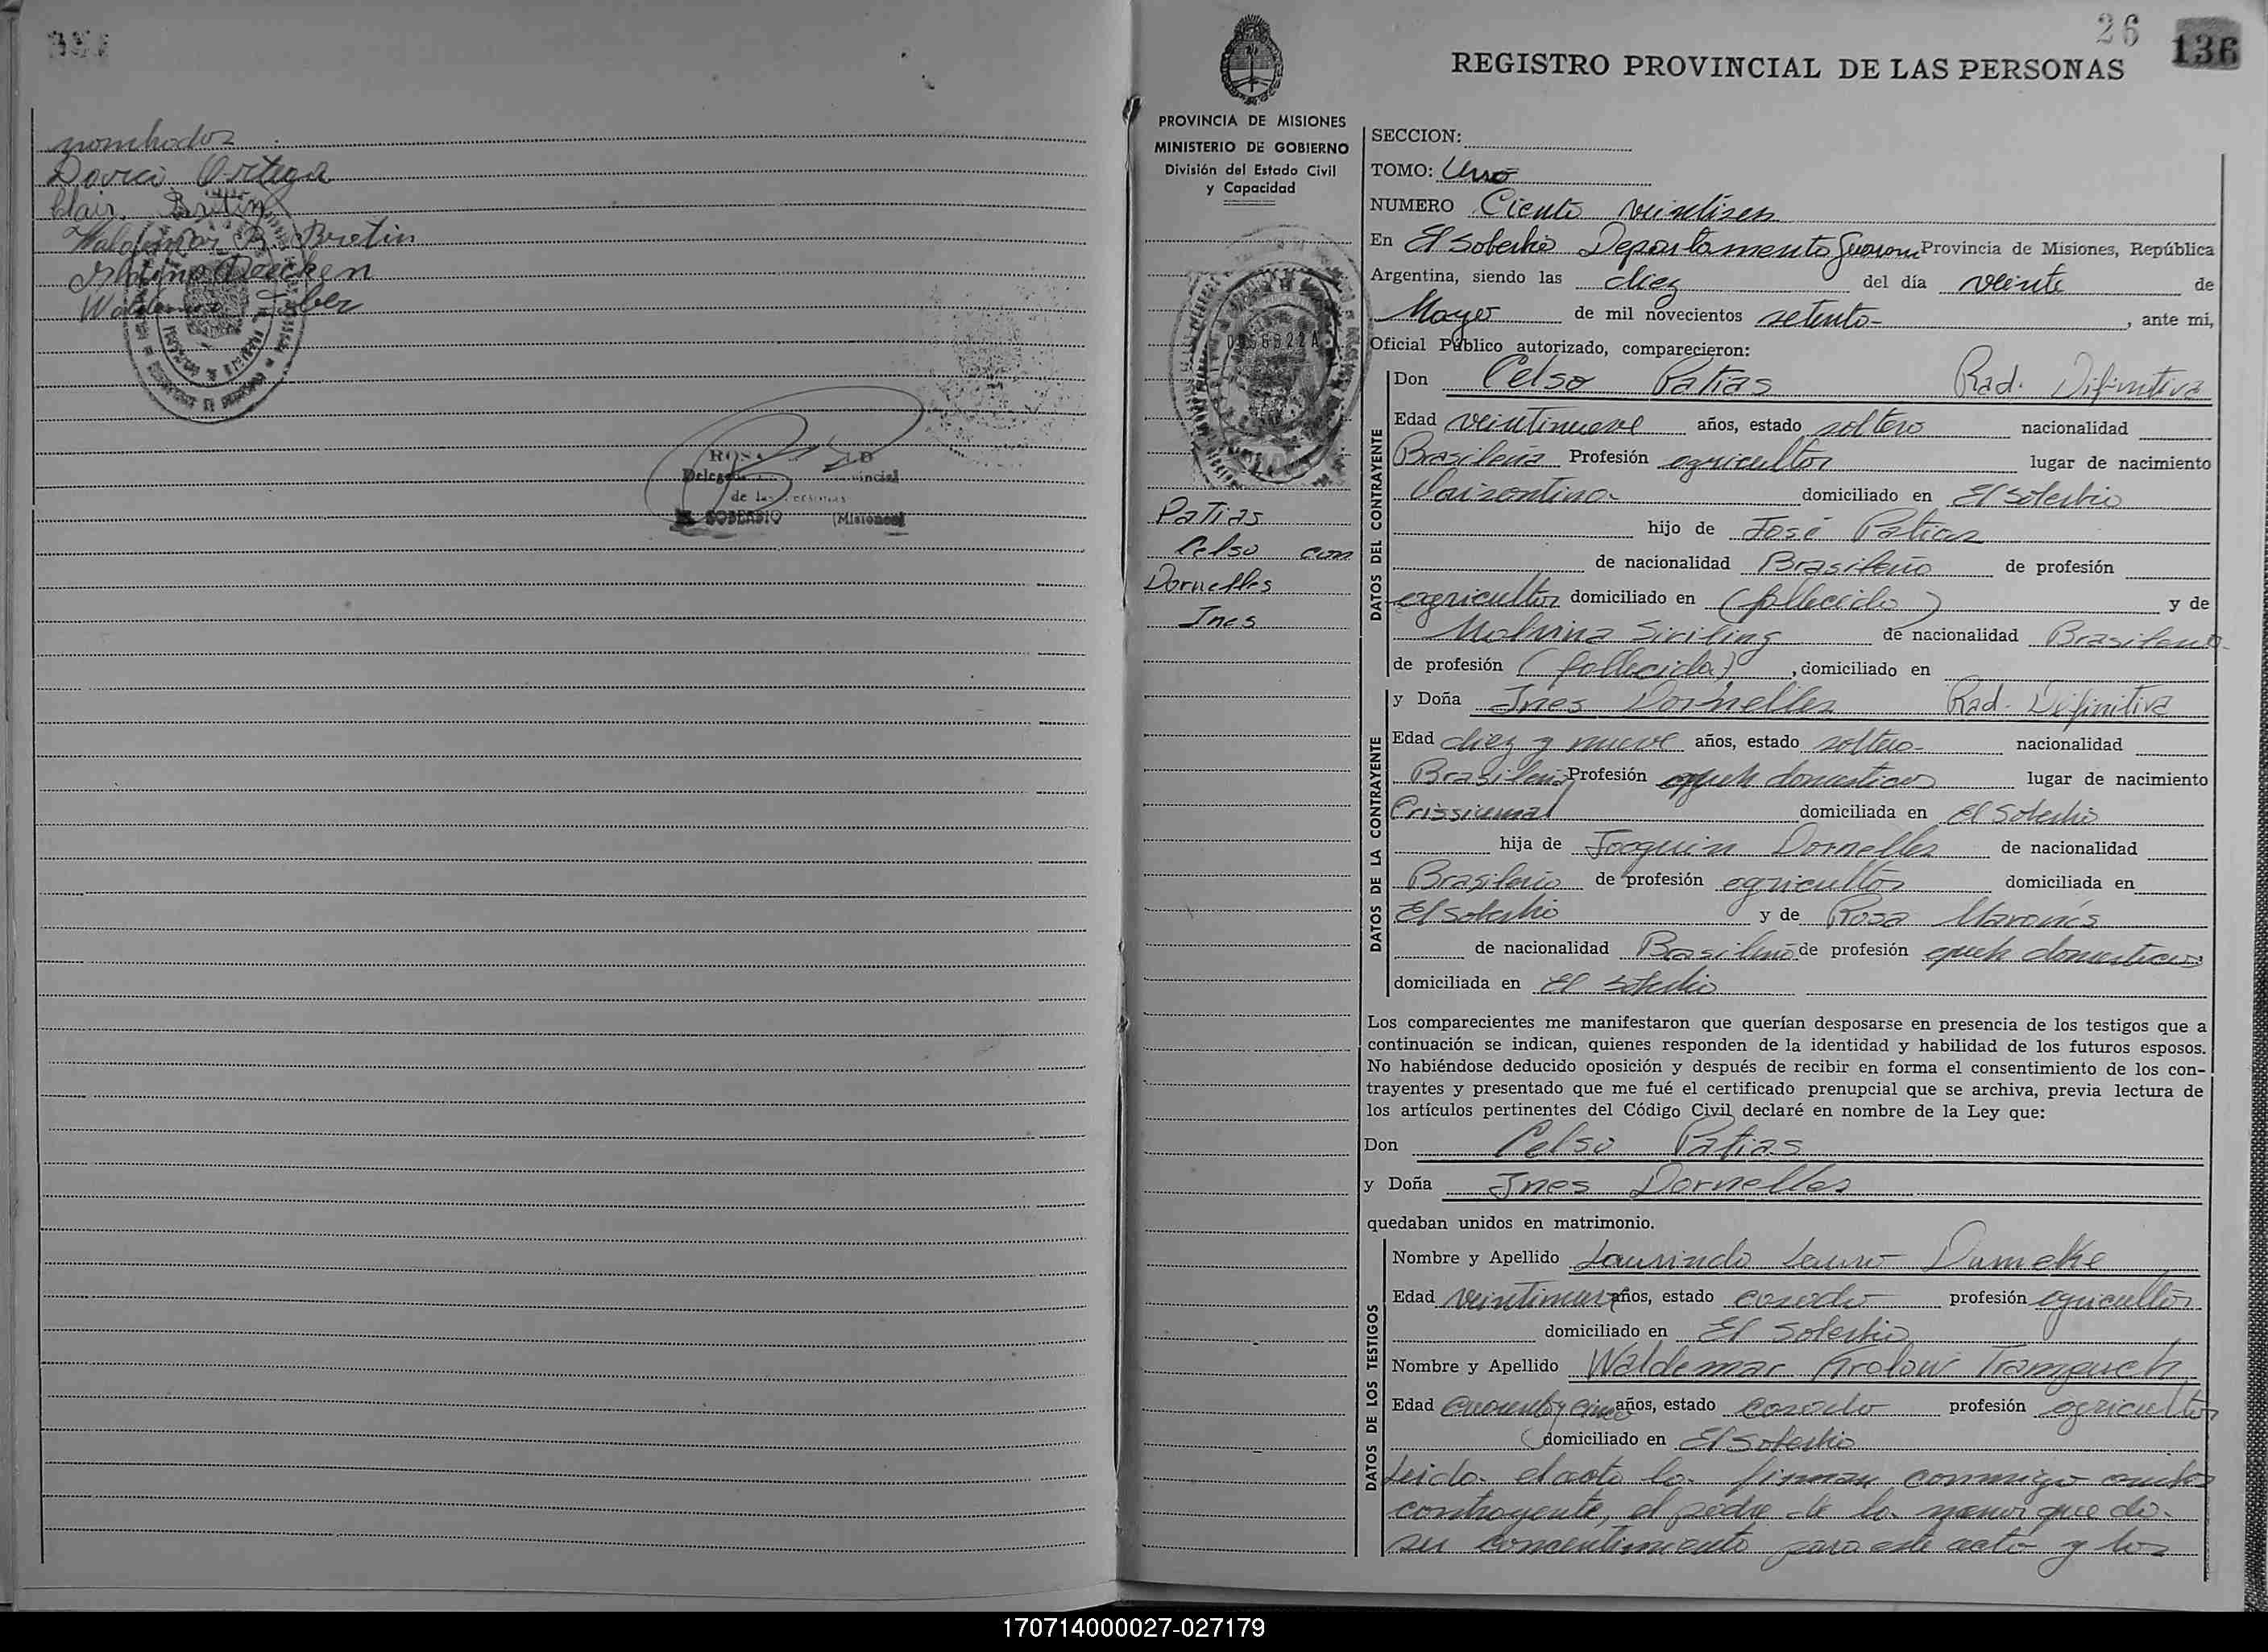 nombrados
Darci Ortega
Clair Bretin
Waldemar R. Bretin
Waldemar Faber
ROSA
Delega vincial
de las Personas
EL SOBERBIO (Misiones)
26
136
REGISTRO PROVINCIAL DE LAS PERSONAS
PROVINCIA DE MISIONES
MINISTERIO DE GOBIERNO
División del Estado Civil
y Capacidad
Patias
Celso con
Dornelles
Ines
SECCION:
TOMO: Uno
NUMERO Ciento veintiseis
En El Soberbio Departamento Guarani Provincia de Misiones, República
Argentina, siendo las diez del día veinte de
Mayo de mil novecientos setenta- , ante mi,
Oficial Público autorizado, comparecieron:
DATOS DEL CONTRAYENTE
Don Celso Patias Rad. Difinitiva
Edad veintinueve años, estado soltero nacionalidad
Brasileña Profesión agricultor lugar de nacimiento
domiciliado en El Soberbio
hijo de José Patias
de nacionalidad Brasileño de profesión
agricultor domiciliado en (fallecido) y de
Malvina Siriling de nacionalidad Brasileña
de profesión (fallecida) , domiciliado en
DATOS DE LA CONTRAYENTE
y Doña Ines Dornelles Rad. Difinitiva
Edad diez y nueve años, estado soltera nacionalidad
Brasileña Profesión queh domesticos lugar de nacimiento
Crissiumal domiciliada en El Soberbio
hija de Joaquin Dornelles de nacionalidad
Brasileño de profesión agricultor domiciliada en
El Soberbio y de Rosa
de nacionalidad Brasileña de profesión queh domesticos
domiciliada en El Soberbio
Los comparecientes me manifestaron que querían desposarse en presencia de los testigos que a
continuación se indican, quienes responden de la identidad y habilidad de los futuros esposos.
No habiéndose deducido oposición y después de recibir en forma el consentimiento de los con-
trayentes y presentado que me fué el certificado prenupcial que se archiva, previa lectura de
los artículos pertinentes del Código Civil declaré en nombre de la Ley que:
Don Celso Patias
y Doña Ines Dornelles
quedaban unidos en matrimonio.
DATOS DE LOS TESTIGOS
Nombre y Apellido Laurindo Lauro Dumcke
Edad veintinueve años, estado casado profesión agricultor
domiciliado en El Soberbio
Nombre y Apellido Waldemar Krolow
Edad cuarenta y cinco años, estado casado profesión agricultor
domiciliado en El Soberbio
Leida el acta la firman conmigo ambos
contrayente, el padre de la menor que da
su concentimiento para este acto y los
170714000027-027179